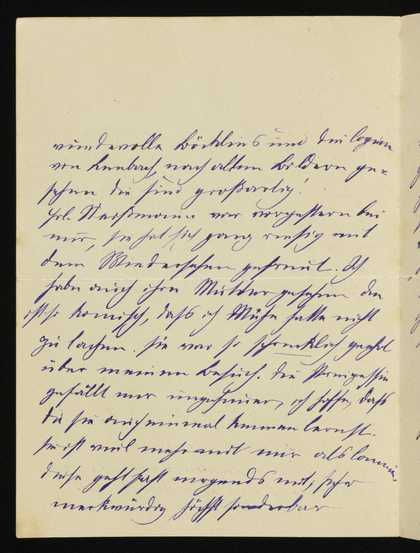 wundervolle Böcklins und die Copien
von Lenbach nach alten Bildern ge=
sehen die sind großartig.
Frl. war vorgestern bei
mir, sie hat sich ganz riesig mit
dem Wiedersehen gefreut. Ich
habe auch ihre Mutter gesehen die
ist so komisch, daß ich Mühe hatte nicht
zu lachen. Sie war so schrecklich geehrt
über meinen Besuch. Die Prinzessin
gefällt mir ungeheuer, ich hoffe, daß
du sie auch einmal kennen lernst.
Sie ist viel mehr mit mir als
diese geht fast nirgends mit, sehr
merkwürdig höchst sonderbar